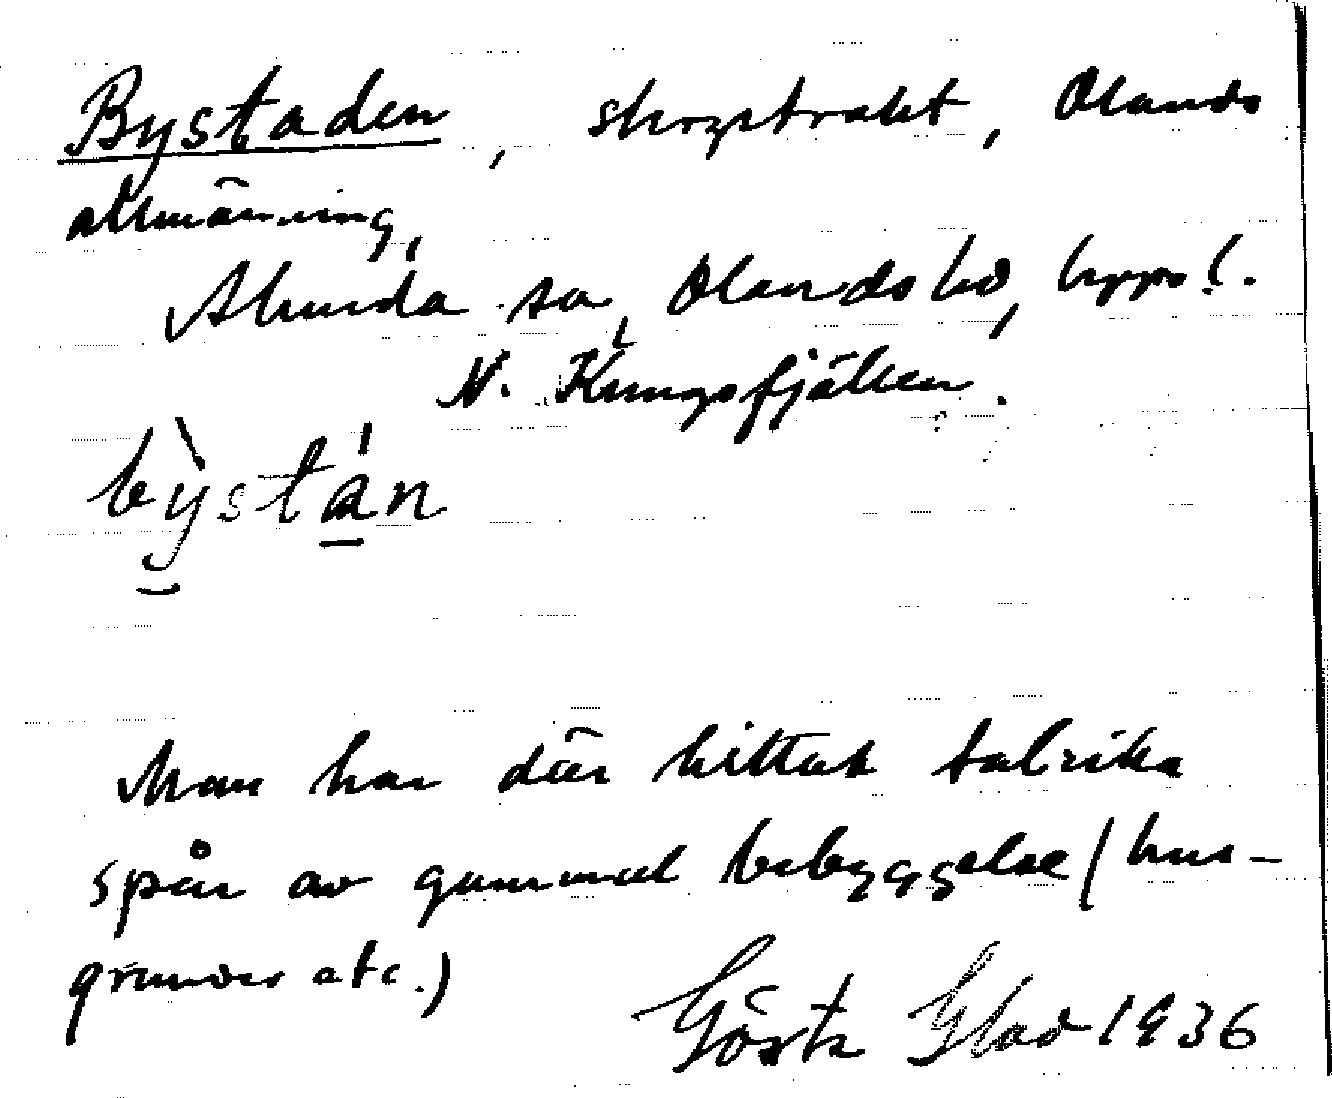 Bystaden, skogstrakt, Olands
allmänning,
Alunda sn, Olands hd, Upps l.
N. Kungsfjälken.
bỳstán
Man har där hittat talrika
spår av gammal bebyggelse (hus-
grunder etc.)
Gösta Glad 1936